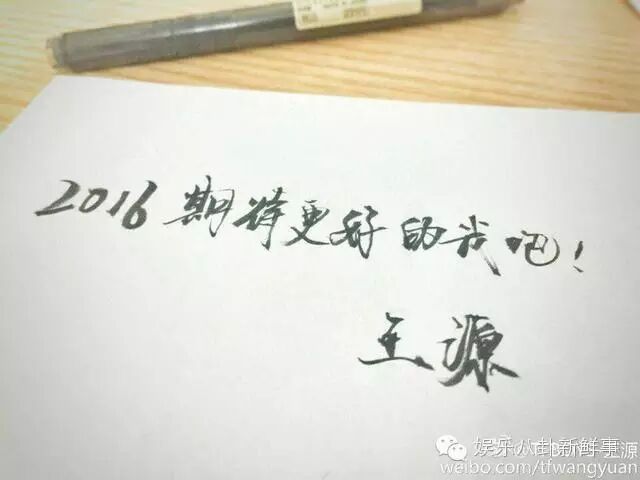 2016 期待更好的我吧！
王源
娱乐八卦新鲜事
weibo.com/tfwangyuan